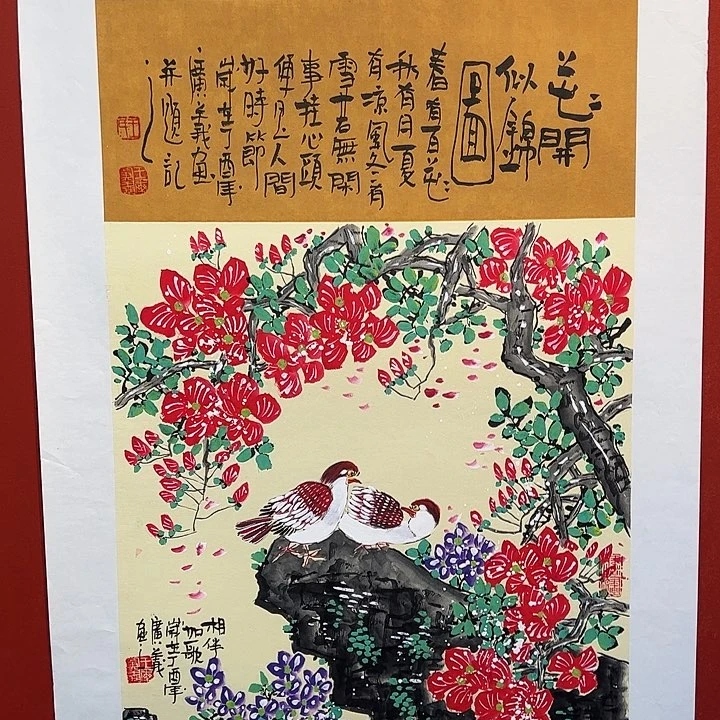 花開
似錦
圖
春有百花
秋有月夏
有涼風冬有
雪若無閑
事挂心頭
便是人間
好時節
歲在丁酉年
廣義畫
并題記
相伴
如歌
歲在丁酉年
廣義
畫